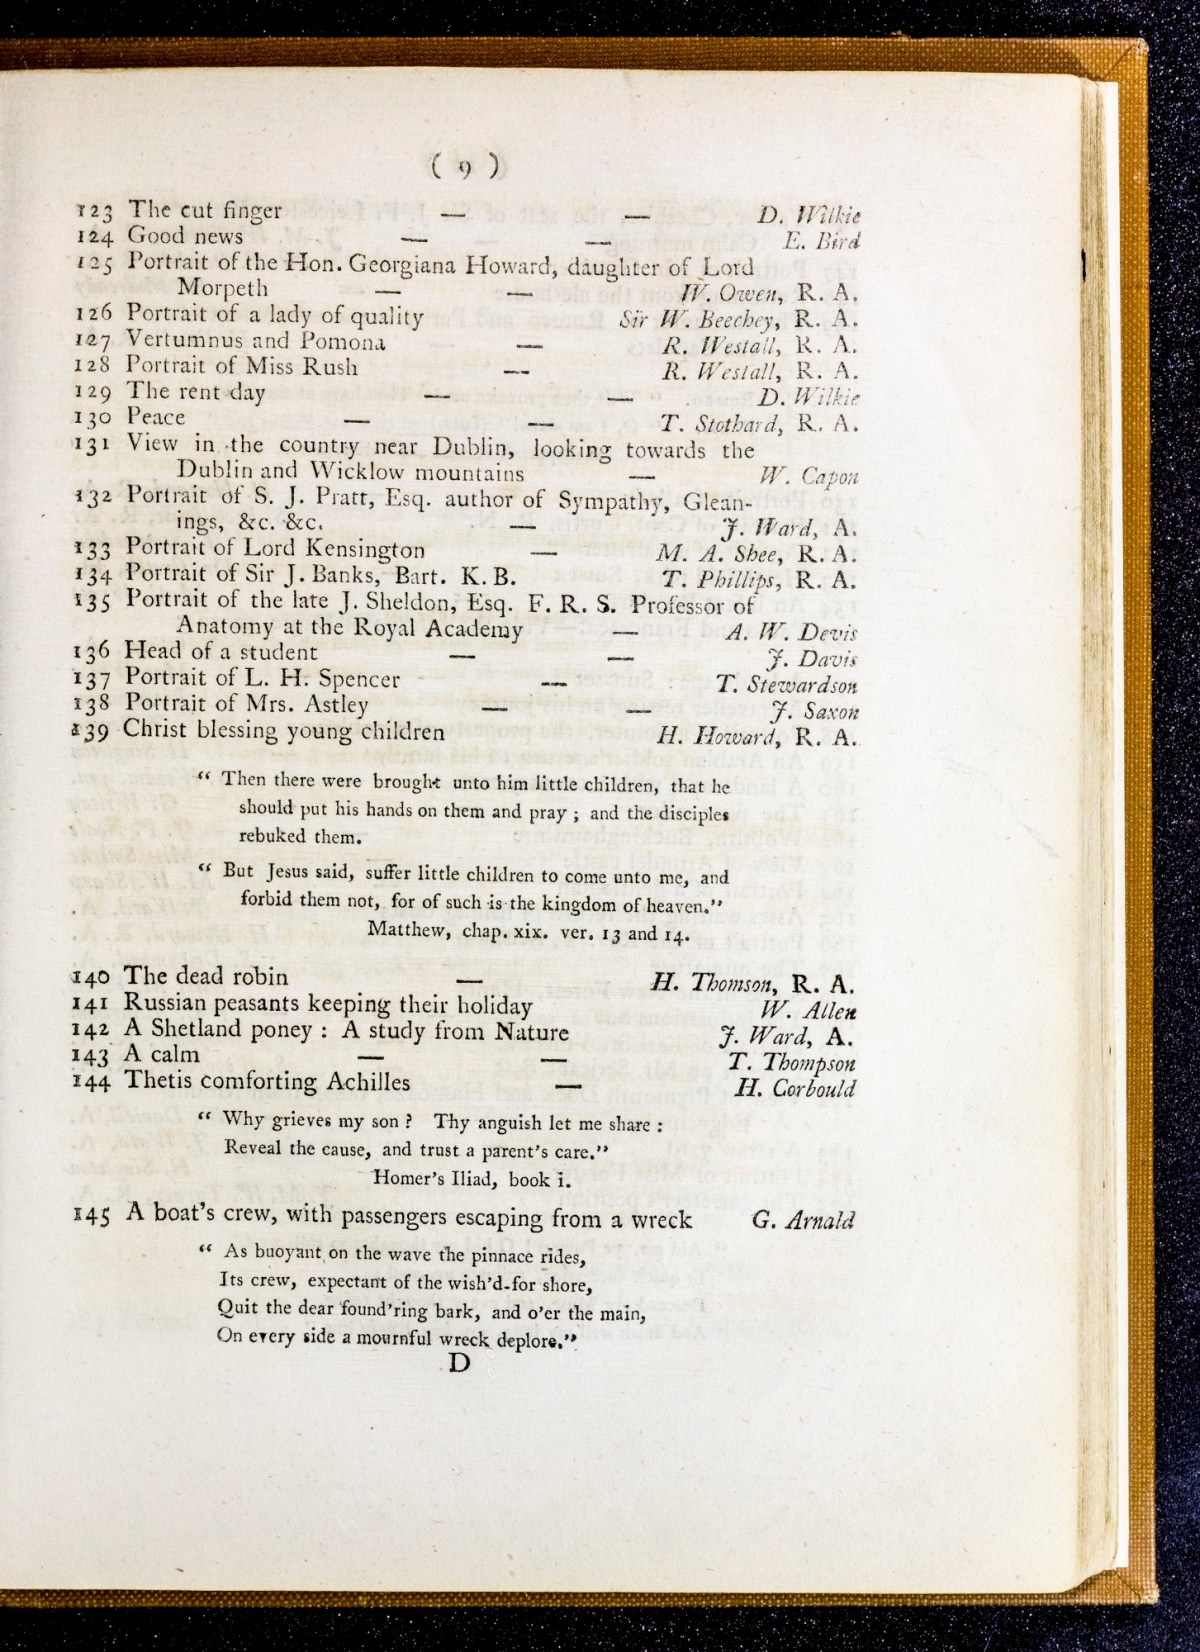 ( 9 )
123 The cut finger — — D. Wilkie
124 Good news — — E. Bird
125 Portrait of the Hon. Georgiana Howard, daughter of Lord
Morpeth — — W. Owen, R. A.
126 Portrait of a lady of quality Sir W. Beechey, R. A.
127 Vertumnus and Pomona — R. Westall, R. A.
128 Portrait of Miss Rush — R. Westall, R. A.
129 The rent day — — D. Wilkie
130 Peace — — T. Stothard, R. A.
131 View in the country near Dublin, looking towards the
Dublin and Wicklow mountains — W. Capon
132 Portrait of S. J. Pratt, Esq. author of Sympathy, Glean-
ings, &c. &c. — J. Ward, A.
133 Portrait of Lord Kensington — M. A. Shee, R. A.
134 Portrait of Sir J. Banks, Bart. K. B. T. Phillips, R. A.
135 Portrait of the late J. Sheldon, Esq. F. R. S. Professor of
Anatomy at the Royal Academy — A. W. Devis
136 Head of a student — — J. Davis
137 Portrait of L. H. Spencer — T. Stewardson
138 Portrait of Mrs. Astley — — J. Saxon
139 Christ blessing young children H. Howard, R. A.
“ Then there were brought unto him little children, that he
should put his hands on them and pray ; and the disciples
rebuked them.
“ But Jesus said, suffer little children to come unto me, and
forbid them not, for of such is the kingdom of heaven.”
Matthew, chap. xix. ver. 13 and 14.
140 The dead robin — H. Thomson, R. A.
141 Russian peasants keeping their holiday W. Allen
142 A Shetland poney : A study from Nature J. Ward, A.
143 A calm — — T. Thompson
144 Thetis comforting Achilles — H. Corbould
“ Why grieves my son ? Thy anguish let me share :
Reveal the cause, and trust a parent's care.”
Homer's Iliad, book i.
145 A boat's crew, with passengers escaping from a wreck G. Arnald
“ As buoyant on the wave the pinnace rides,
Its crew, expectant of the wish'd-for shore,
Quit the dear found'ring bark, and o'er the main,
On every side a mournful wreck deplore.”
D